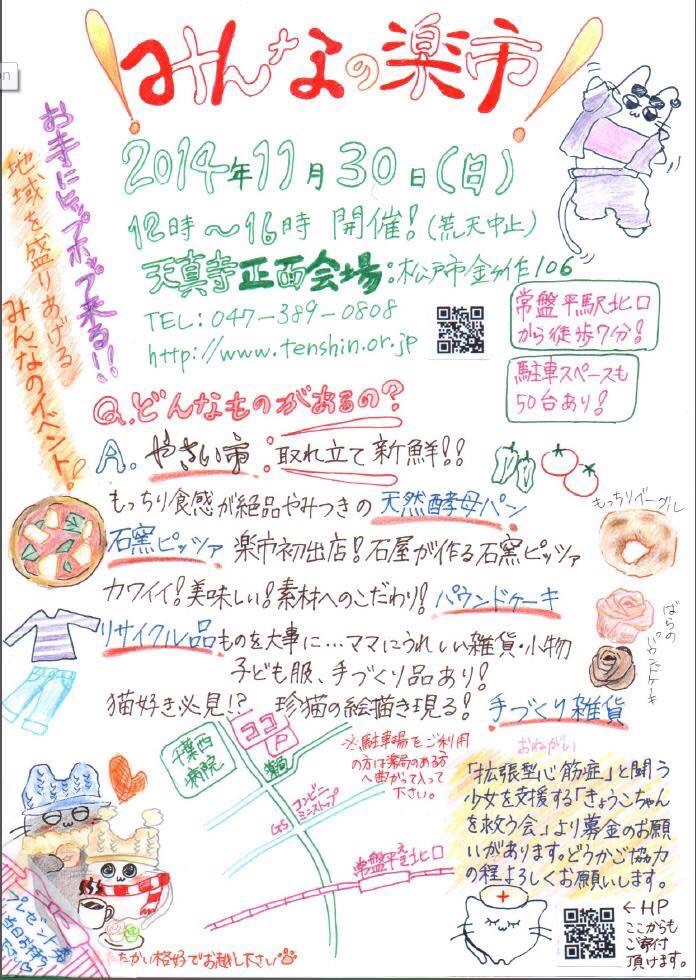 みんなの楽市
2014年11月30日(日)
12時〜16時 開催!(荒天中止)
天真寺正面会場:松戸市金ケ作106
TEL:047-389-0808
http://www.tenshin.or.jp
常盤平駅北口
から徒歩7分!
駐車スペースも
50台あり!
お寺にヒップホップ来る!!
地域を盛りあげる
みんなのイベント!
Q.どんなものがあるの?
A.やさい市:取れ立て新鮮!!
もっちり食感が絶品やみつきの天然酵母パン
石窯ピッツァ 楽市初出店!石屋が作る石窯ピッツァ
カワイイ!美味しい!素材へのこだわり!パウンドケーキ
リサイクル品ものを大事に…ママにうれしい雑貨・小物
子ども服、手づくり品あり!
猫好き必見!? 珍猫の絵描き現る!手づくり雑貨
もっちりベーグル
ばらの
パウンドケーキ
千葉西
病院
ココ
P
薬局
コンビニ
ミニストップ
GS
常盤平駅北口
※駐車場をご利用
の方は薬局のある方
へ曲がって入って
下さい。
おねがい
「拡張型心筋症」と闘う
少女を支援する「きょうこちゃん
を救う会」より募金のお願
いがあります。どうかご協力
の程よろしくお願いします。
←HP
ここからも
ご寄付
頂けます。
プレゼント券
当日お持ち
下さい
たかい格好でお越し下さい